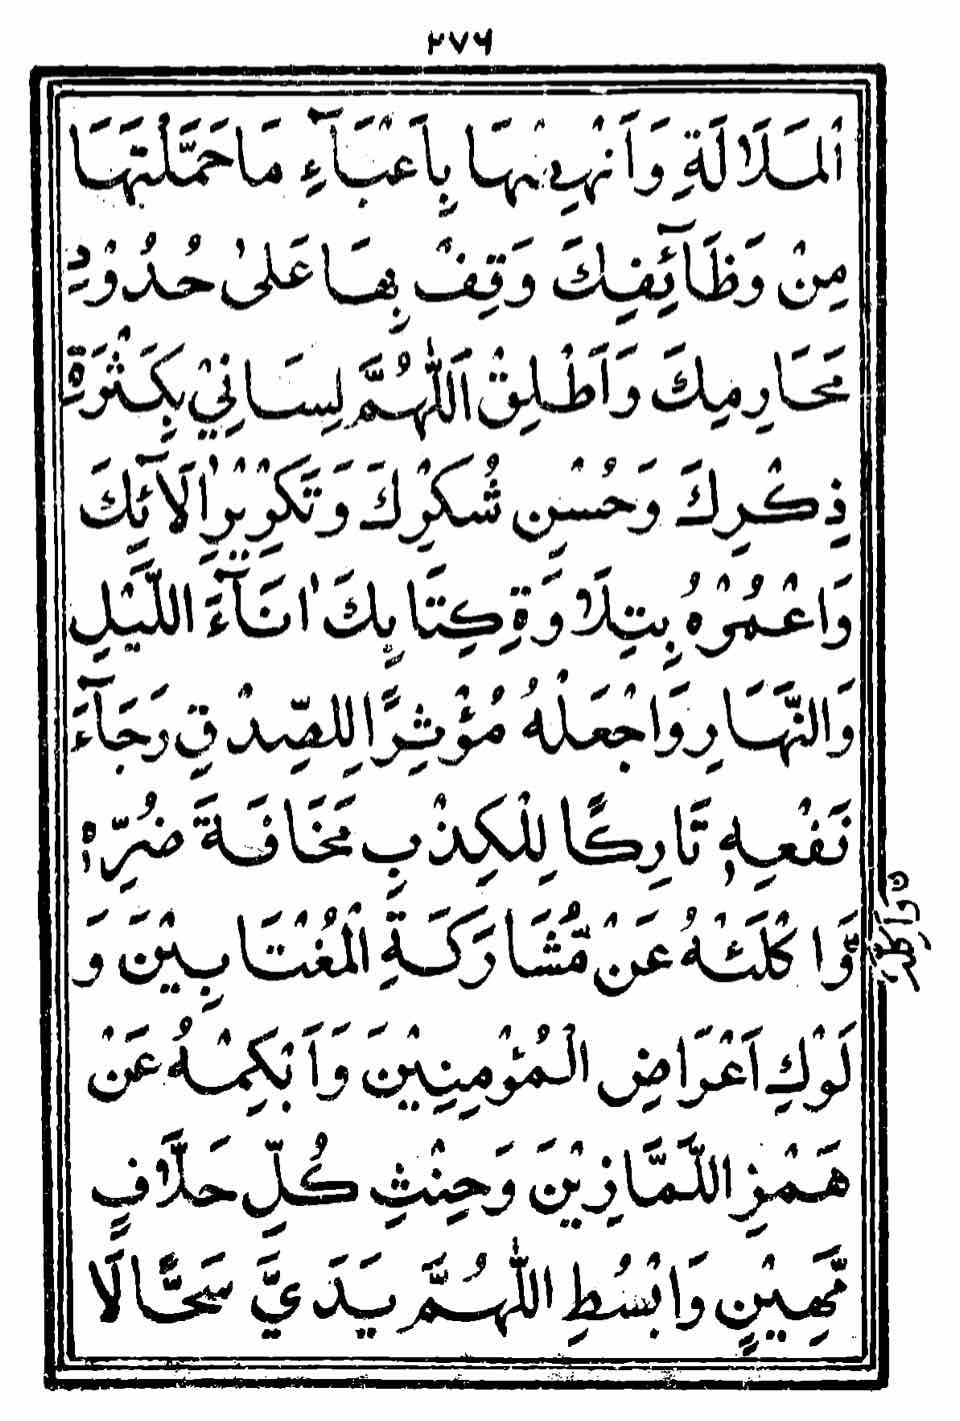 ٢٧٦
اَلمَلَالَةِ وَاَنْهِيْ بِهَا بِاَعْبَآءِ مَاحَمَّلْتَهَا
مِنْ وَظَآئِفِكَ وَقِفْ بِهَا عَلٰى حُدُوْدِ
مَحَارِمِكَ وَاَطْلِقْ اَللّٰهُمَّ لِسَانِيْ بِكَثْرَةِ
ذِكْرِكَ وَحُسْنِ شُكْرِكَ وَتَكْرِيْرِ اٰلَآئِكَ
وَاعْمُرْهُ بِتِلَاوَةِ كِتَابِكَ اٰنَآءَ اللَّيْلِ
وَالنَّهَارِ وَاجْعَلْهُ مُؤْثِرًا لِلصِّدْقِ رَجَآءَ
نَفْعِهٖ تَارِكًا لِلْكِذْبِ مَخَافَةَ ضُرِّهٖ
وَّاكْلَئْهُ عَنْ مُّشَارَكَةِ الْمُغْتَابِيْنَ وَ
لَوْكِ اَعْرَاضِ الْمُؤْمِنِيْنَ وَاَبْكِمْهُ عَنْ
هَمْزِ اللَّمَّازِيْنَ وَحِنْثِ كُلِّ حَلَّافٍ
مَّهِيْنٍ وَابْسُطِ اللّٰهُمَّ يَدَيَّ سَحًّا لَا